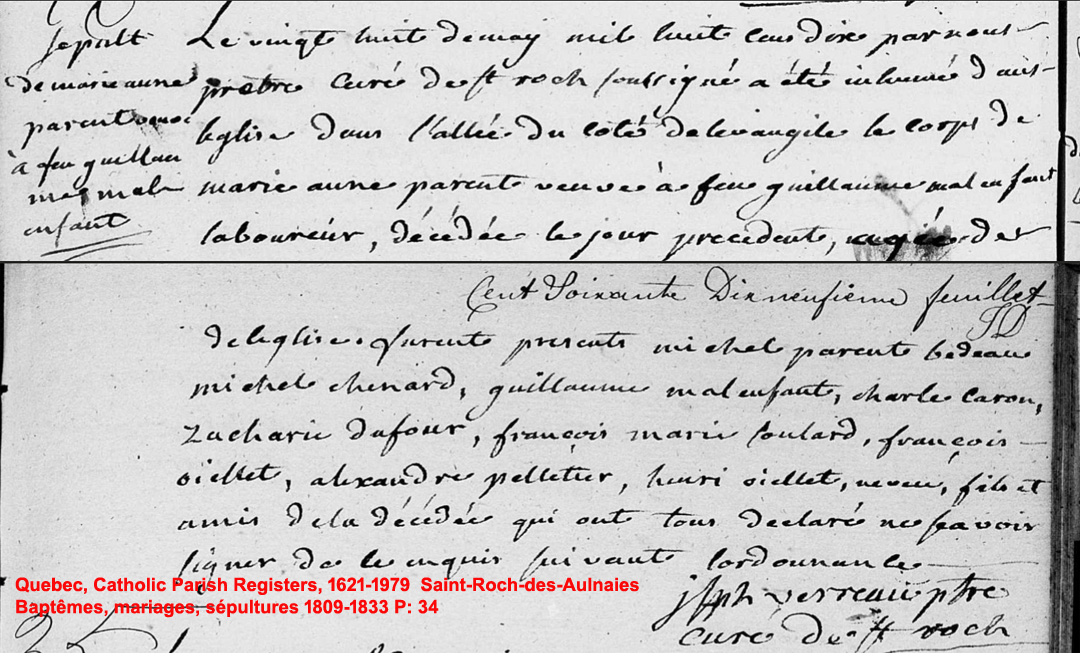 sepult
de marie anne
parent veuve
à feu guillau
me mal
enfant
Le vingt huit de may mil huit cens dixe par nous
prêtre curé de st roch soussigné a été inhumé dans
leglise dans l'allée du coté delevangile le corps de
marie anne parent veuve à feu guillaume malenfant
laboureur, décédée le jour precedent, agée de
Cent Soixante Dixneufième feuillet
JD
deleglise. furent presents michel parent bedeau
michel chenard, guillaume malenfant, charle caron,
zacharie dufour, francois marie soulard, francois
oiellet, alexandre pelletier, henri oiellet, neveu, fils et
amis dela décédée qui ont tous declaré ne sçavoir
signer de ce enquis suivant lordonnance
jsph verreau ptre
curé de st roch
Quebec, Catholic Parish Registers, 1621-1979 Saint-Roch-des-Aulnaies
Baptêmes, mariages, sépultures 1809-1833 P: 34